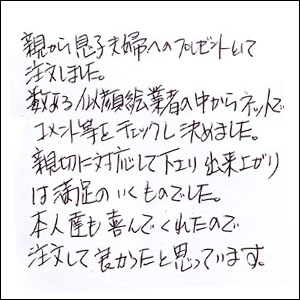 親から息子夫婦へのプレゼントとして
注文しました。
数ある似顔絵業者の中からネットで
コメント等をチェックし決めました。
親切に対応して下さり出来上がり
は満足のいくものでした。
本人達も喜んでくれたので
注文して良かったと思っています。